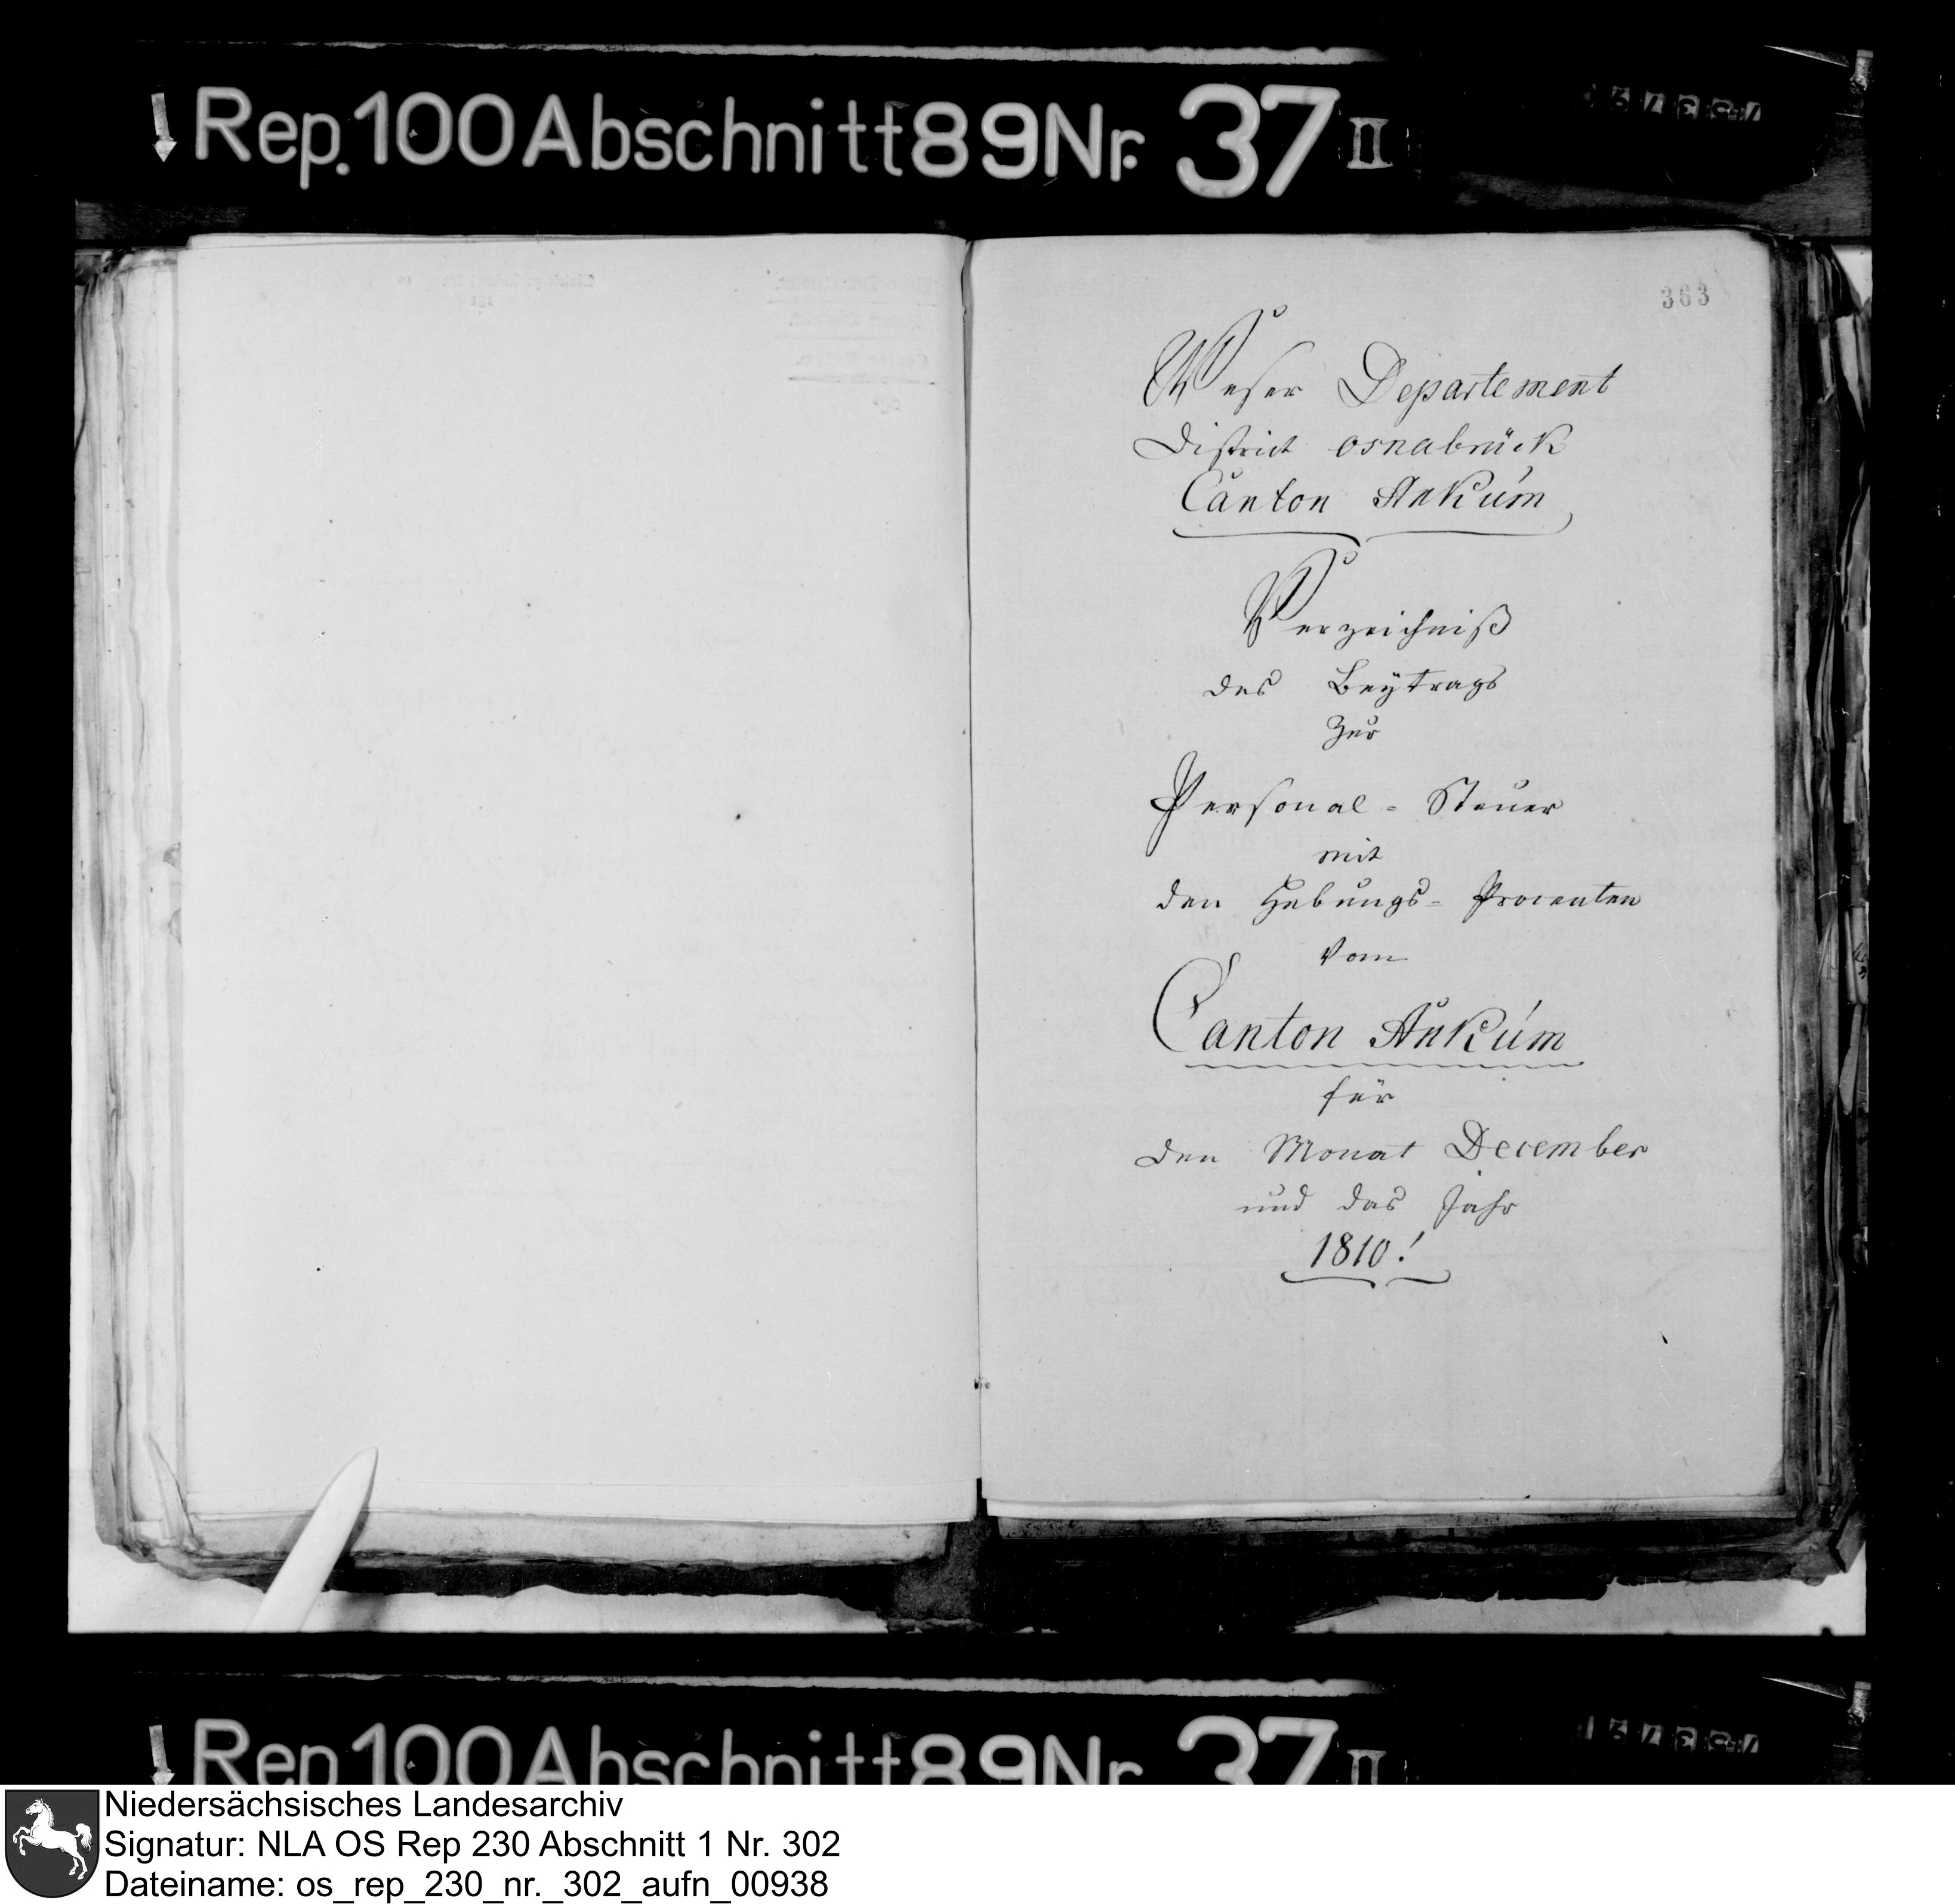 Rep. 100 Abschnitt 89 Nr. 37 II
363
Weser Departement
District Osnabrück
Canton Ankum
Verzeichniß
des Beytrags
zur
Personal-Steuer
mit
den Hebungs-Procenten
vom
Canton Ankum
für
den Monat December
und das Jahr
1810!
Rep. 100 Abschnitt 89 Nr. 37 II
Niedersächsisches Landesarchiv
Signatur: NLA OS Rep 230 Abschnitt 1 Nr. 302
Dateiname: os_rep_230_nr._302_aufn_00938